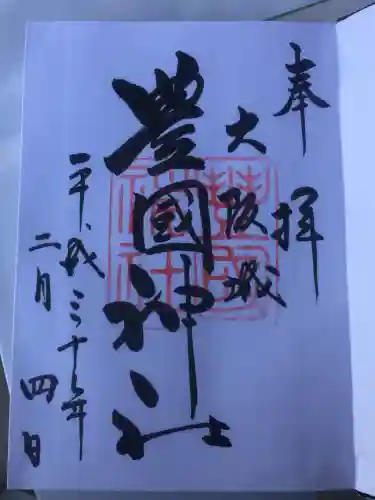 奉拝
大阪城
豊國神社
平成三十年
二月四日
豊國神社